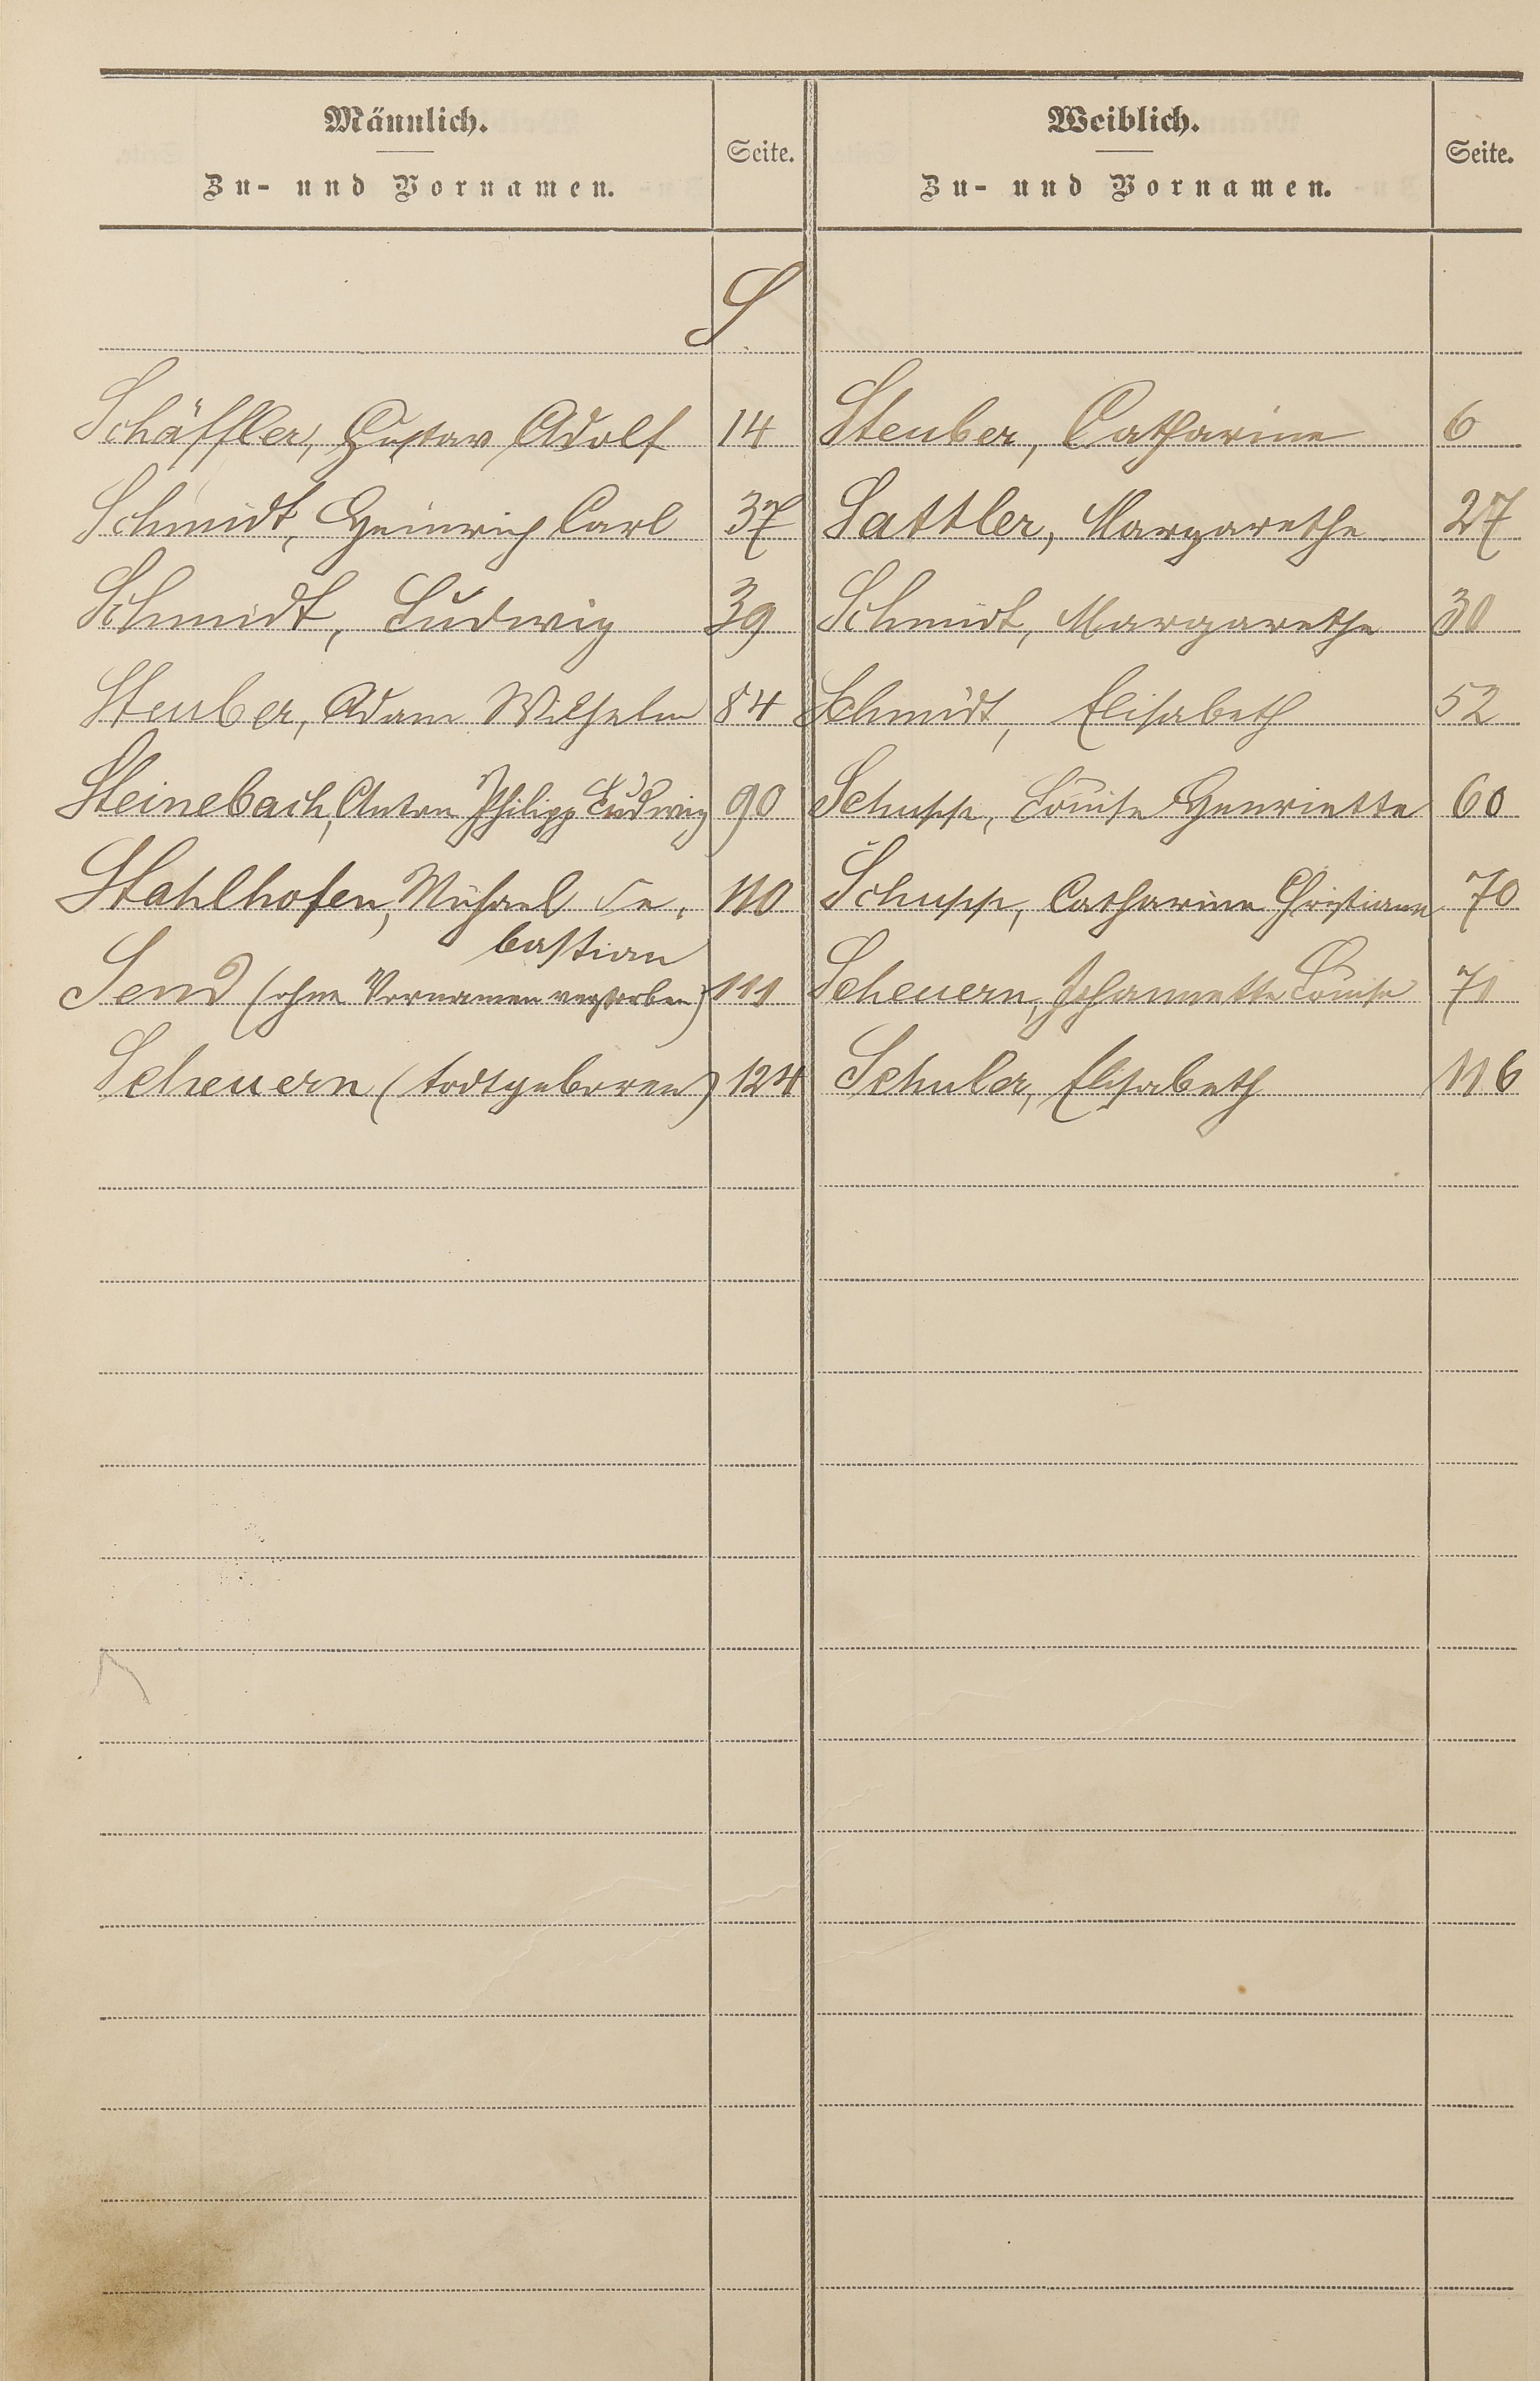 Männlich.
Zu- und Vornamen.
Seite.
Weiblich.
Zu- und Vornamen.
Seite.
S
Schäffler, Gustav Adolf 14 Steuber, Catharine 6
Schmidt, Heinrich Carl 37 Sattler, Margarethe 27
Schmidt, Ludwig 39 Schmidt, Margarethe 30
Steuber, Adam Wilhelm 84 Schmidt, Elisabeth 52
Steinebach, Anton Philipp Ludwig 90 Schupp, Louise Henriette 60
Stahlhofen, Michael Se- 110 Schupp, Catharine Christiane 70
bastian
Send (ohne Vornamen verstorben) 111 Scheuern, Johannette Louise 71
Scheuern (todtgeboren) 124 Schuler, Elisabeth 116